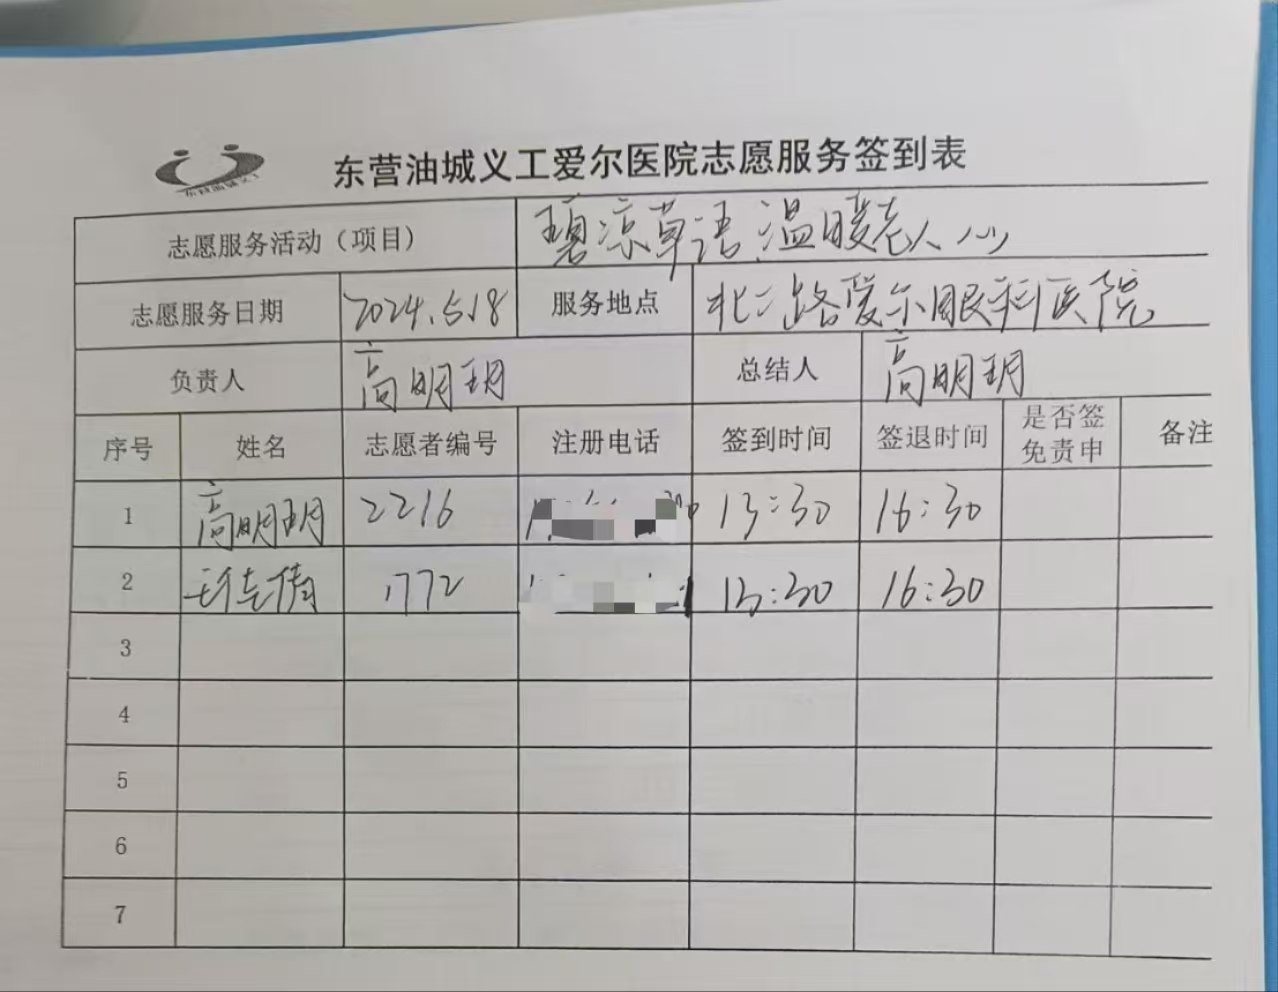 东营油城义工
东营油城义工爱尔医院志愿服务签到表
志愿服务活动（项目） 碧凉草语,温暖老人心
志愿服务日期 2024.5.18 服务地点 北二路爱尔眼科医院
负责人 高明玥 总结人 高明玥
序号 姓名 志愿者编号 注册电话 签到时间 签退时间 是否签免责申 备注
1 高明玥 2216 13:30 16:30
2 1772 13:30 16:30
3
4
5
6
7